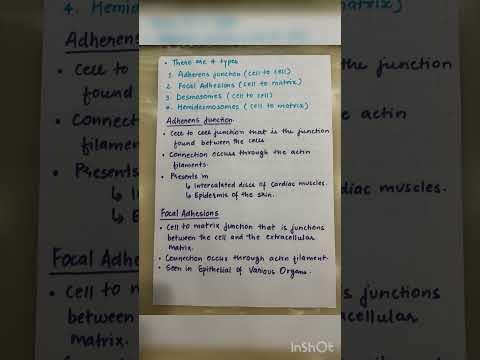 4. Hemidesmosomes (cell to matrix)
• There are 4 types
1. Adherens junction (cell to cell)
2. Focal Adhesions (cell to matrix)
3. Desmosomes (cell to cell)
4. Hemidesmosomes (cell to matrix)
Adherens Junction
• Cell to cell junction that is the junction
found between the cells
• Connection occurs through the actin
filaments.
• Presents in
↳ Intercalated discs of Cardiac muscles.
↳ Epidermis of the skin.
Focal Adhesions
• Cell to matrix junction that is junctions
between the cell and the extracellular
matrix.
• Connection occur through actin filament.
• Seen in Epithelial of Various Organs.
InShOt